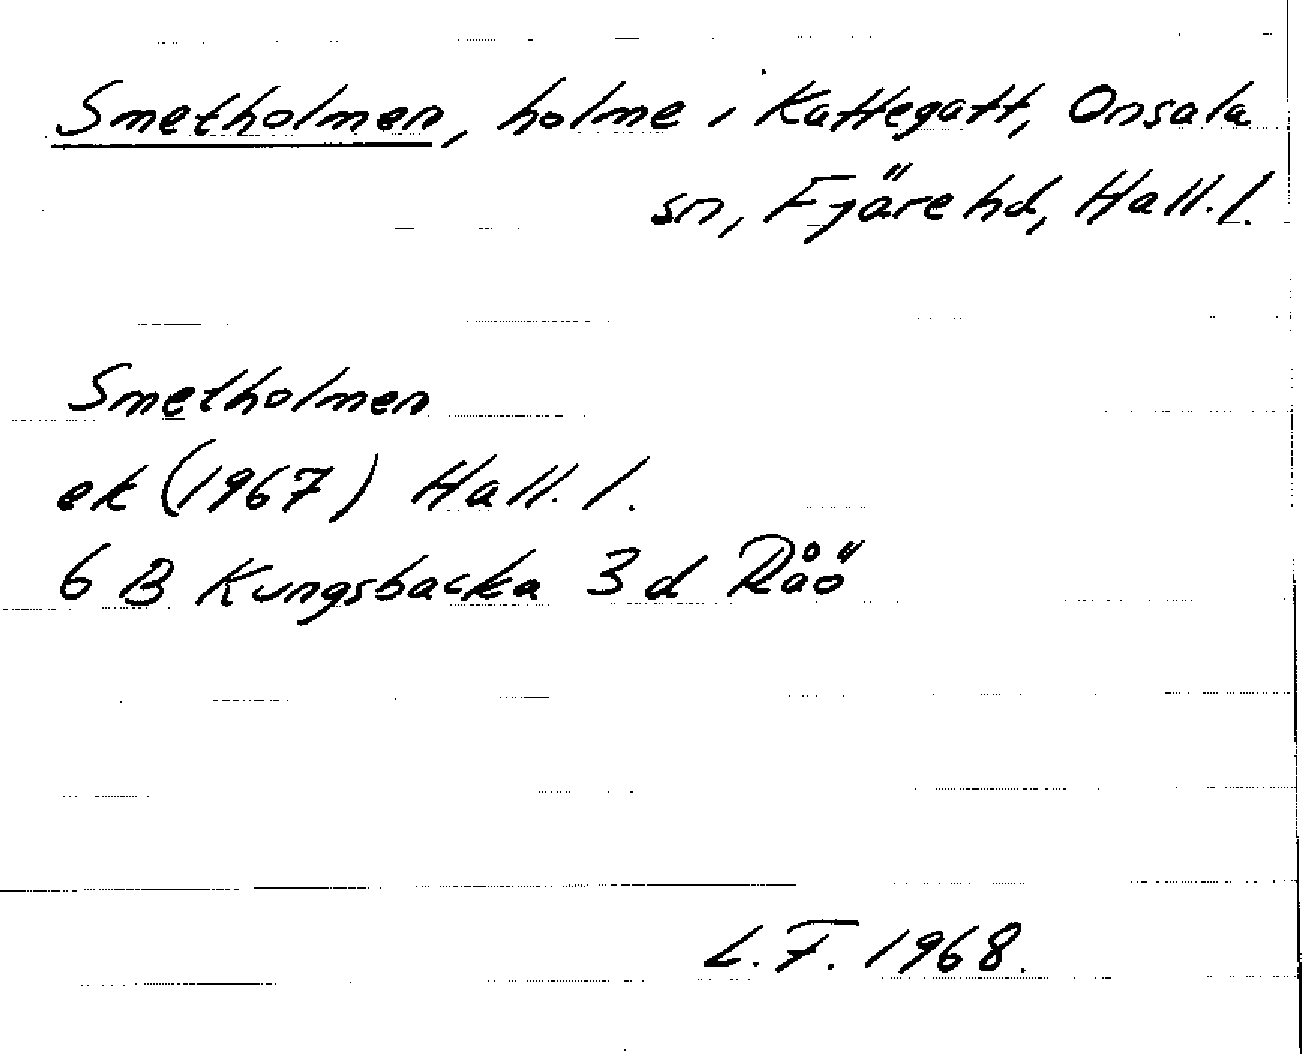 Smetholmen, holme i Kattegatt, Onsala
sn, Fjäre hd, Hall. l.
Smetholmen
ek (1967) Hall. l.
6 B Kungsbacka 3 d Råö
L. F. 1968.